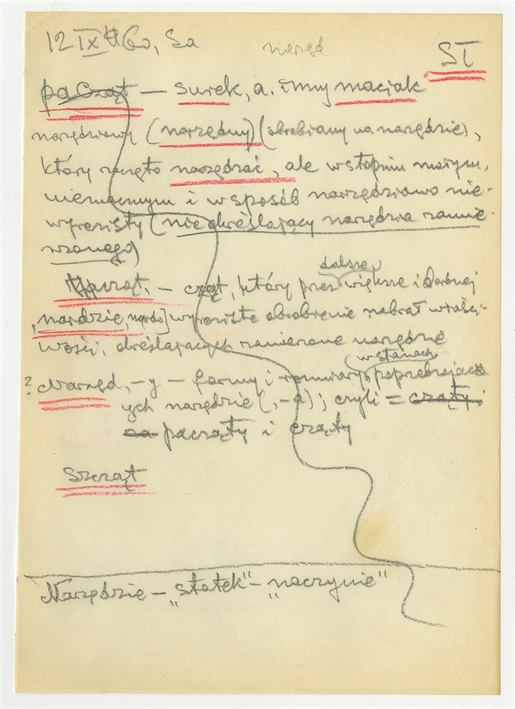 12 IX 60, Sa narząd ST
pacząt — surek, a. inny maciak
narzędziowy (narzędny) (obrabiany na narzędzie),
który zaczęto narzędzać, ale w stopniu małym,
nieznacznym i w sposób narzędziowo nie-
wyrazisty (nie określający narzędzia zamie-
rzonego)
cząt, który przez dalsze, większe i dosadniej
wyraziste obrobienie nabrał właści-
wości, określających zamierzone narzędzie
? Narząd, -y — formy i rozmiary w stanach poprzedzając
ych narzędzie (, -a); czyli = cząty;
są pacząty i cząty
Szcząt
Narzędzie — „statek" — „naczynie"